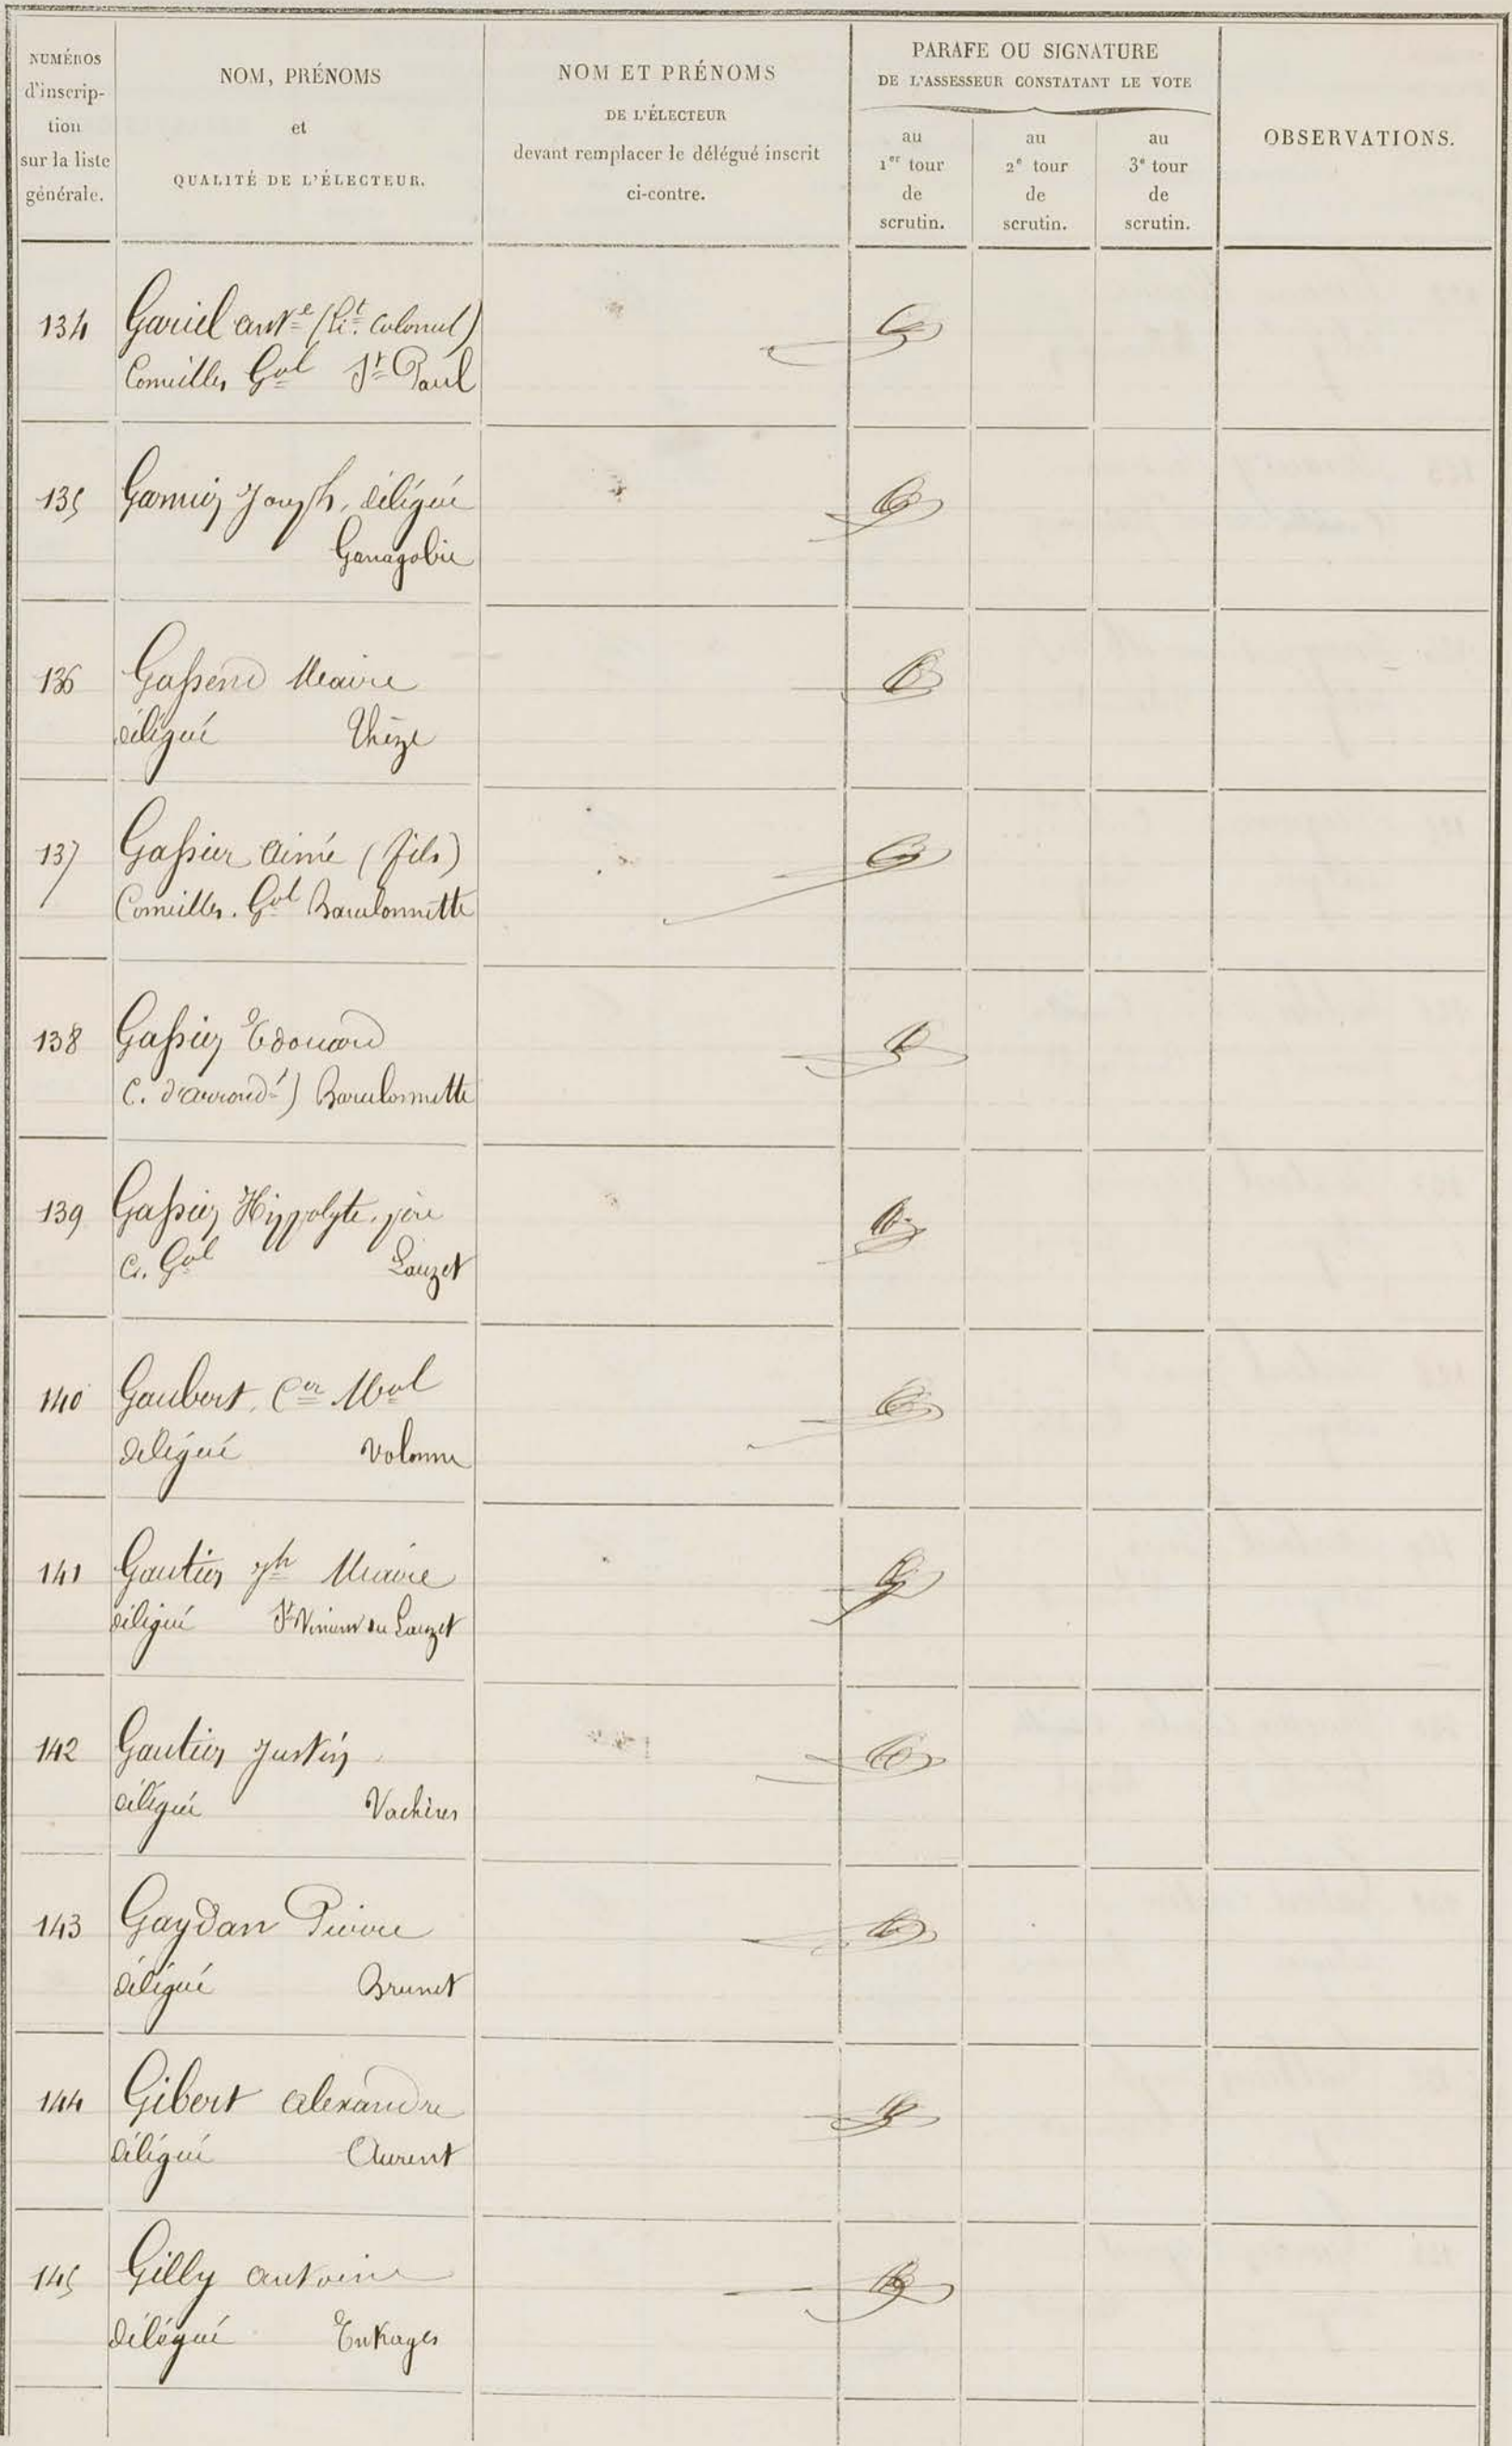 NUMÉROS
d'inscrip-
tion
sur la liste
générale.
NOM, PRÉNOMS
et
QUALITÉ DE L'ÉLECTEUR.
NOM ET PRÉNOMS
DE L'ÉLECTEUR
devant remplacer le délégué inscrit
ci-contre.
PARAFE OU SIGNATURE
DE L'ASSESSEUR CONSTATANT LE VOTE
au
1er tour
de
scrutin.
au
2e tour
de
scrutin.
au
3e tour
de
scrutin.
OBSERVATIONS.
134 Gariel antne (Lt. Colonel)
Conseiller Gal St Paul
135 Garnier Joseph, délégué
Ganagobie
136 Gassend Maire
délégué Thèze
137 Gassier Aimé (fils)
Conseiller. Gal Barcelonnette
138 Gassier Edouard
C. d'arrondt) Barcelonnette
139 Gassier Hippolyte, père
C. Gal Lauzet
140 Gaubert, Cer Mal
délégué Volonne
141 Gautier Jh Maire
délégué St Vincent du Lauzet
142 Gautier Justin
délégué Vachères
143 Gaydan Pierre
délégué Brunet
144 Gibert Alexandre
délégué Aurent
145 Gilly Antoine
délégué Entrages